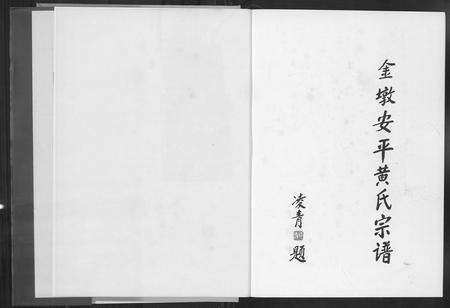 金墩安平黄氏宗谱
凌青题